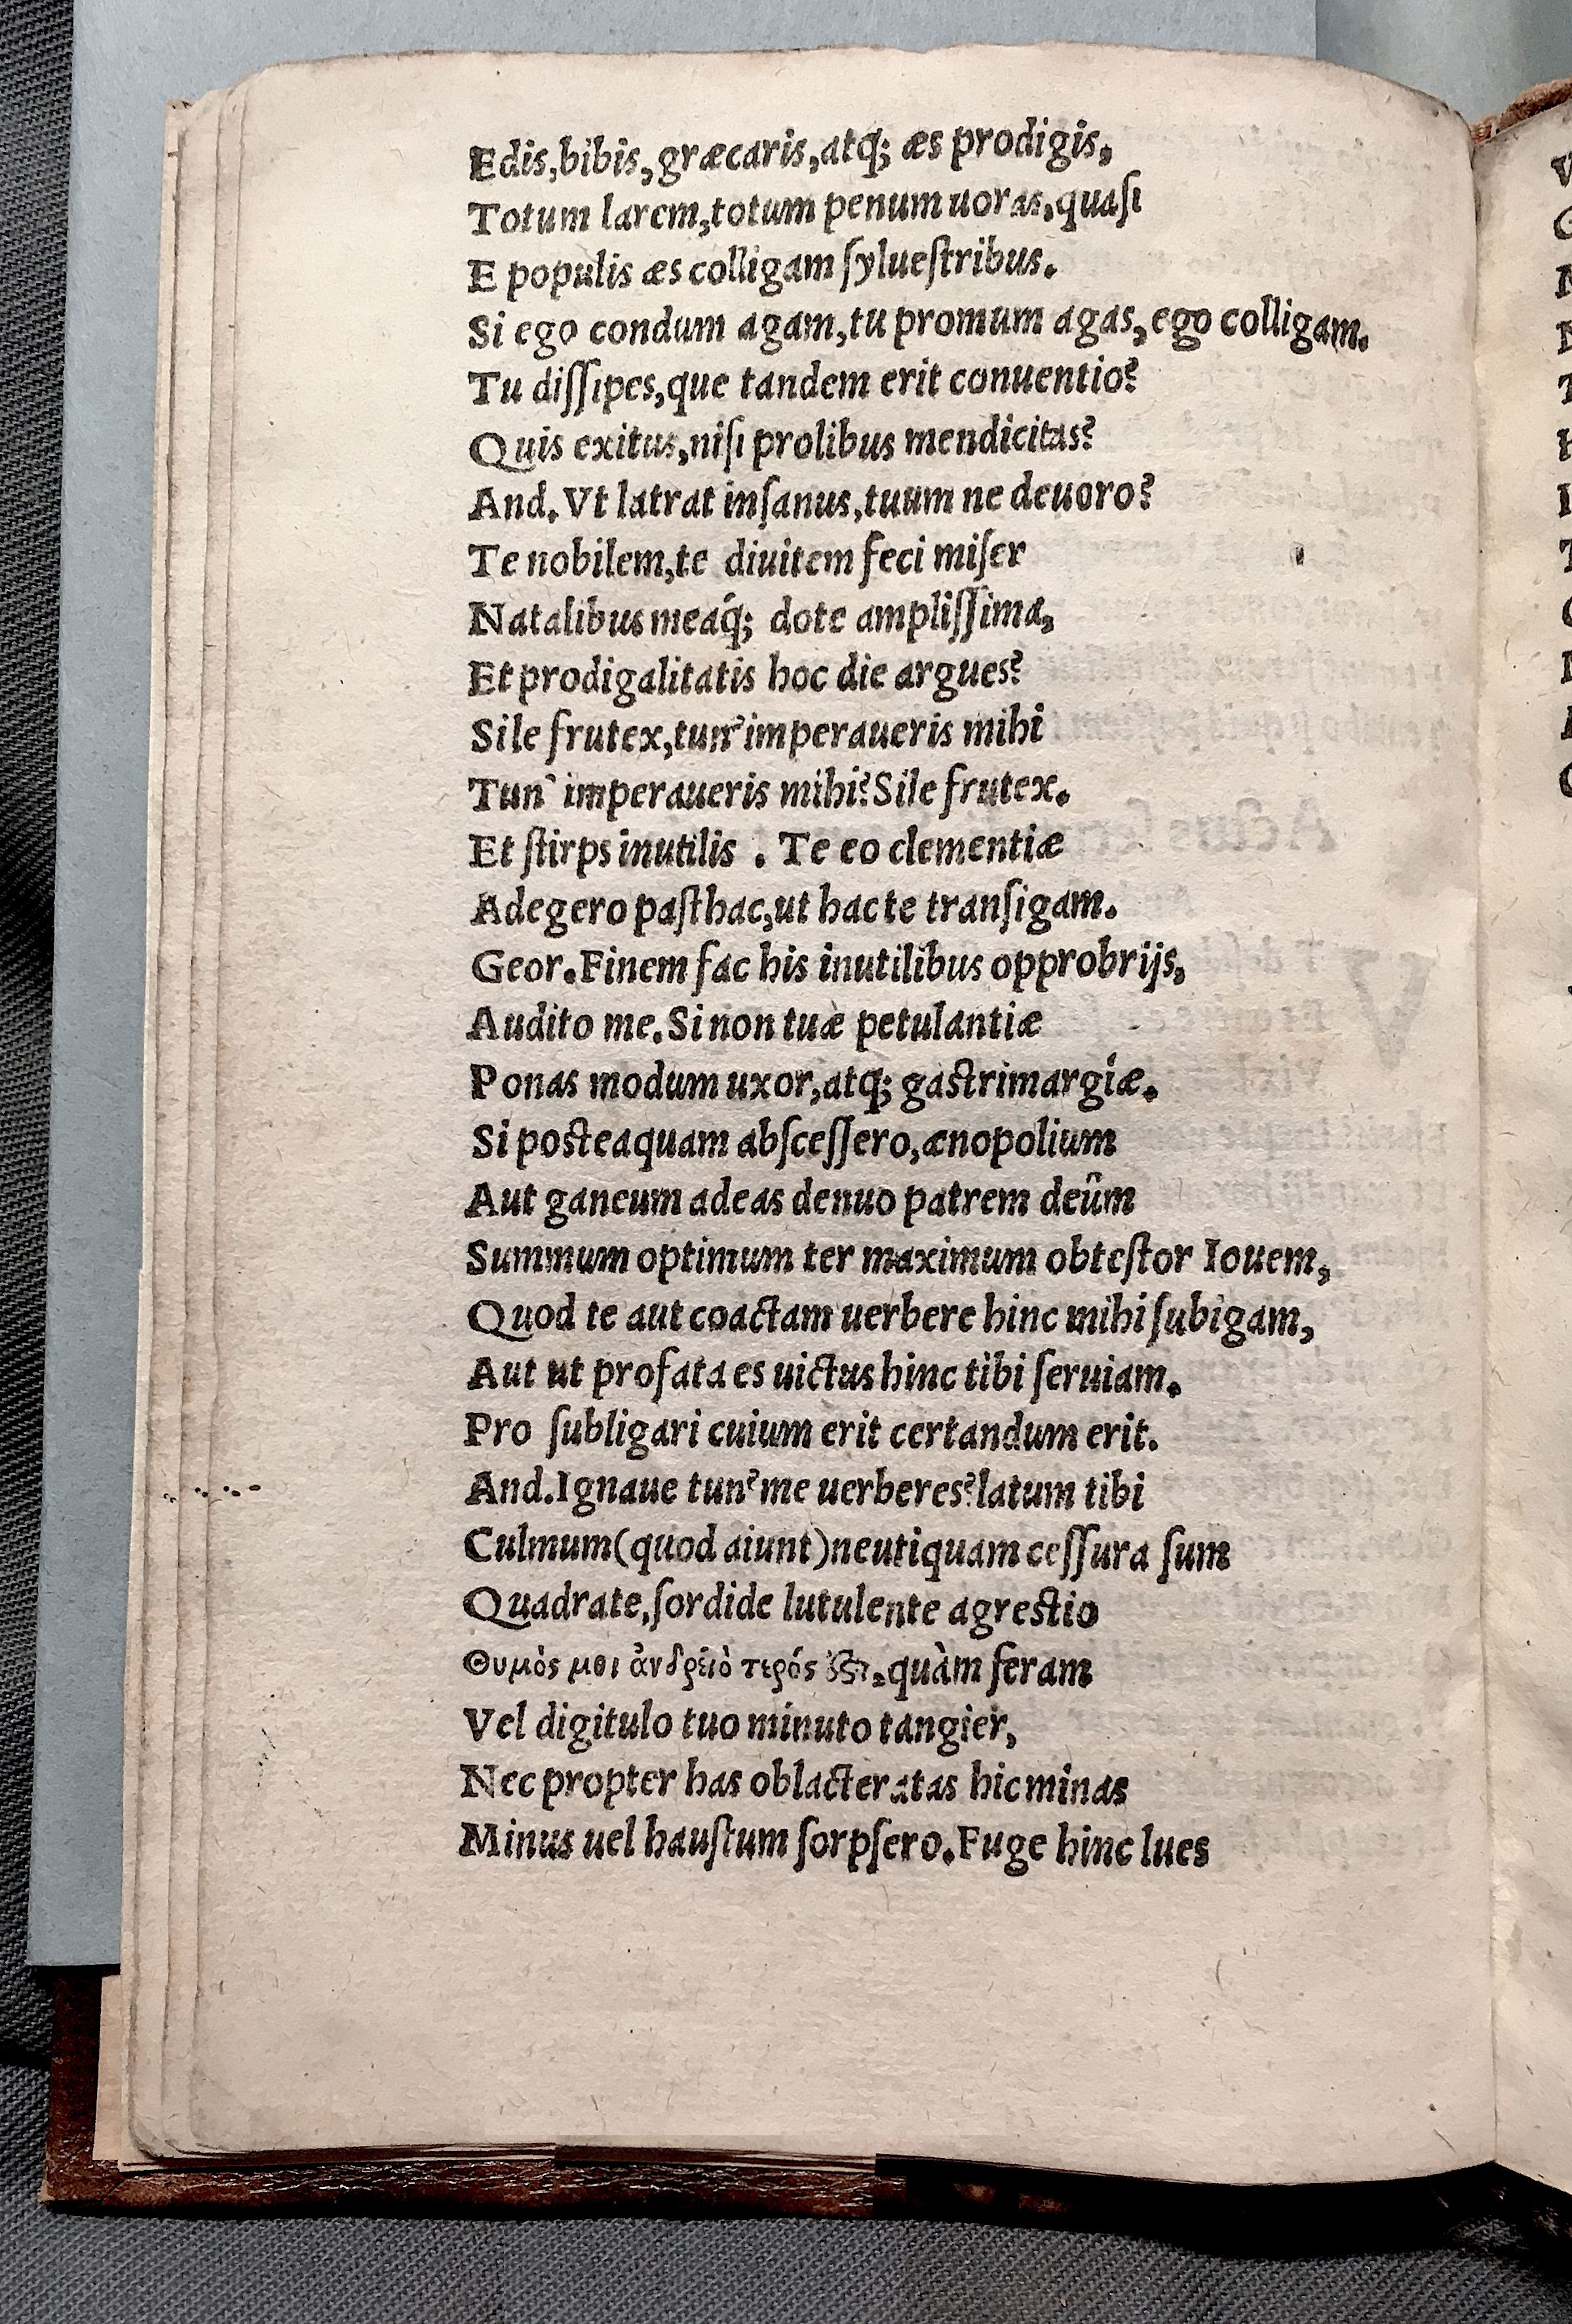 Edis,bibis,græcaris,atq; æs prodigis,
Totum larem,totum penum uoras,quaſi
E populis æs colligam ſylueſtribus.
Si ego condum agam,tu promum agas,ego colligam.
Tu diſſipes,que tandem erit conuentio?
Quis exitus,niſi prolibus mendicitas?
And.Vt latrat inſanus,tuum ne deuoro?
Te nobilem,te diuitem feci miſer
Natalibus meaq́; dote ampliſſima,
Et prodigalitatis hoc die argues?
Sile frutex,tun'imperaueris mihi
Tun` imperaueris mihi?Sile frutex.
Et ſtirps inutilis . Te eo clementiæ
Adegero paſthac,ut hac te tranſigam.
Geor.Finem fac his inutilibus opprobrijs,
Audito me.Si non tuæ petulantiæ
Ponas modum uxor,atq; gastrimargíæ.
Si posteaquam abſceſſero,ænopolium
Aut ganeum adeas denuo patrem deûm
Summum optimum ter maximum obteſtor Iouem,
Quod te aut coactam uerbere hinc mihi ſubigam,
Aut ut profata es uictus hinc tibi ſeruiam.
Pro ſubligari cuium erit certandum erit.
And.Ignaue tun'me uerberes?latum tibi
Culmum(quod aiunt)neutiquam ceſſura ſum
Quadrate,ſordide lutulente agrestio
Θυμὸς μοι ἀνδρειὸ τερός quàm feram
Vel digitulo tuo minuto tangier,
Nec propter has oblacteratas hic minas
Minus uel hauſtum ſorpſero.Fuge hinc lues